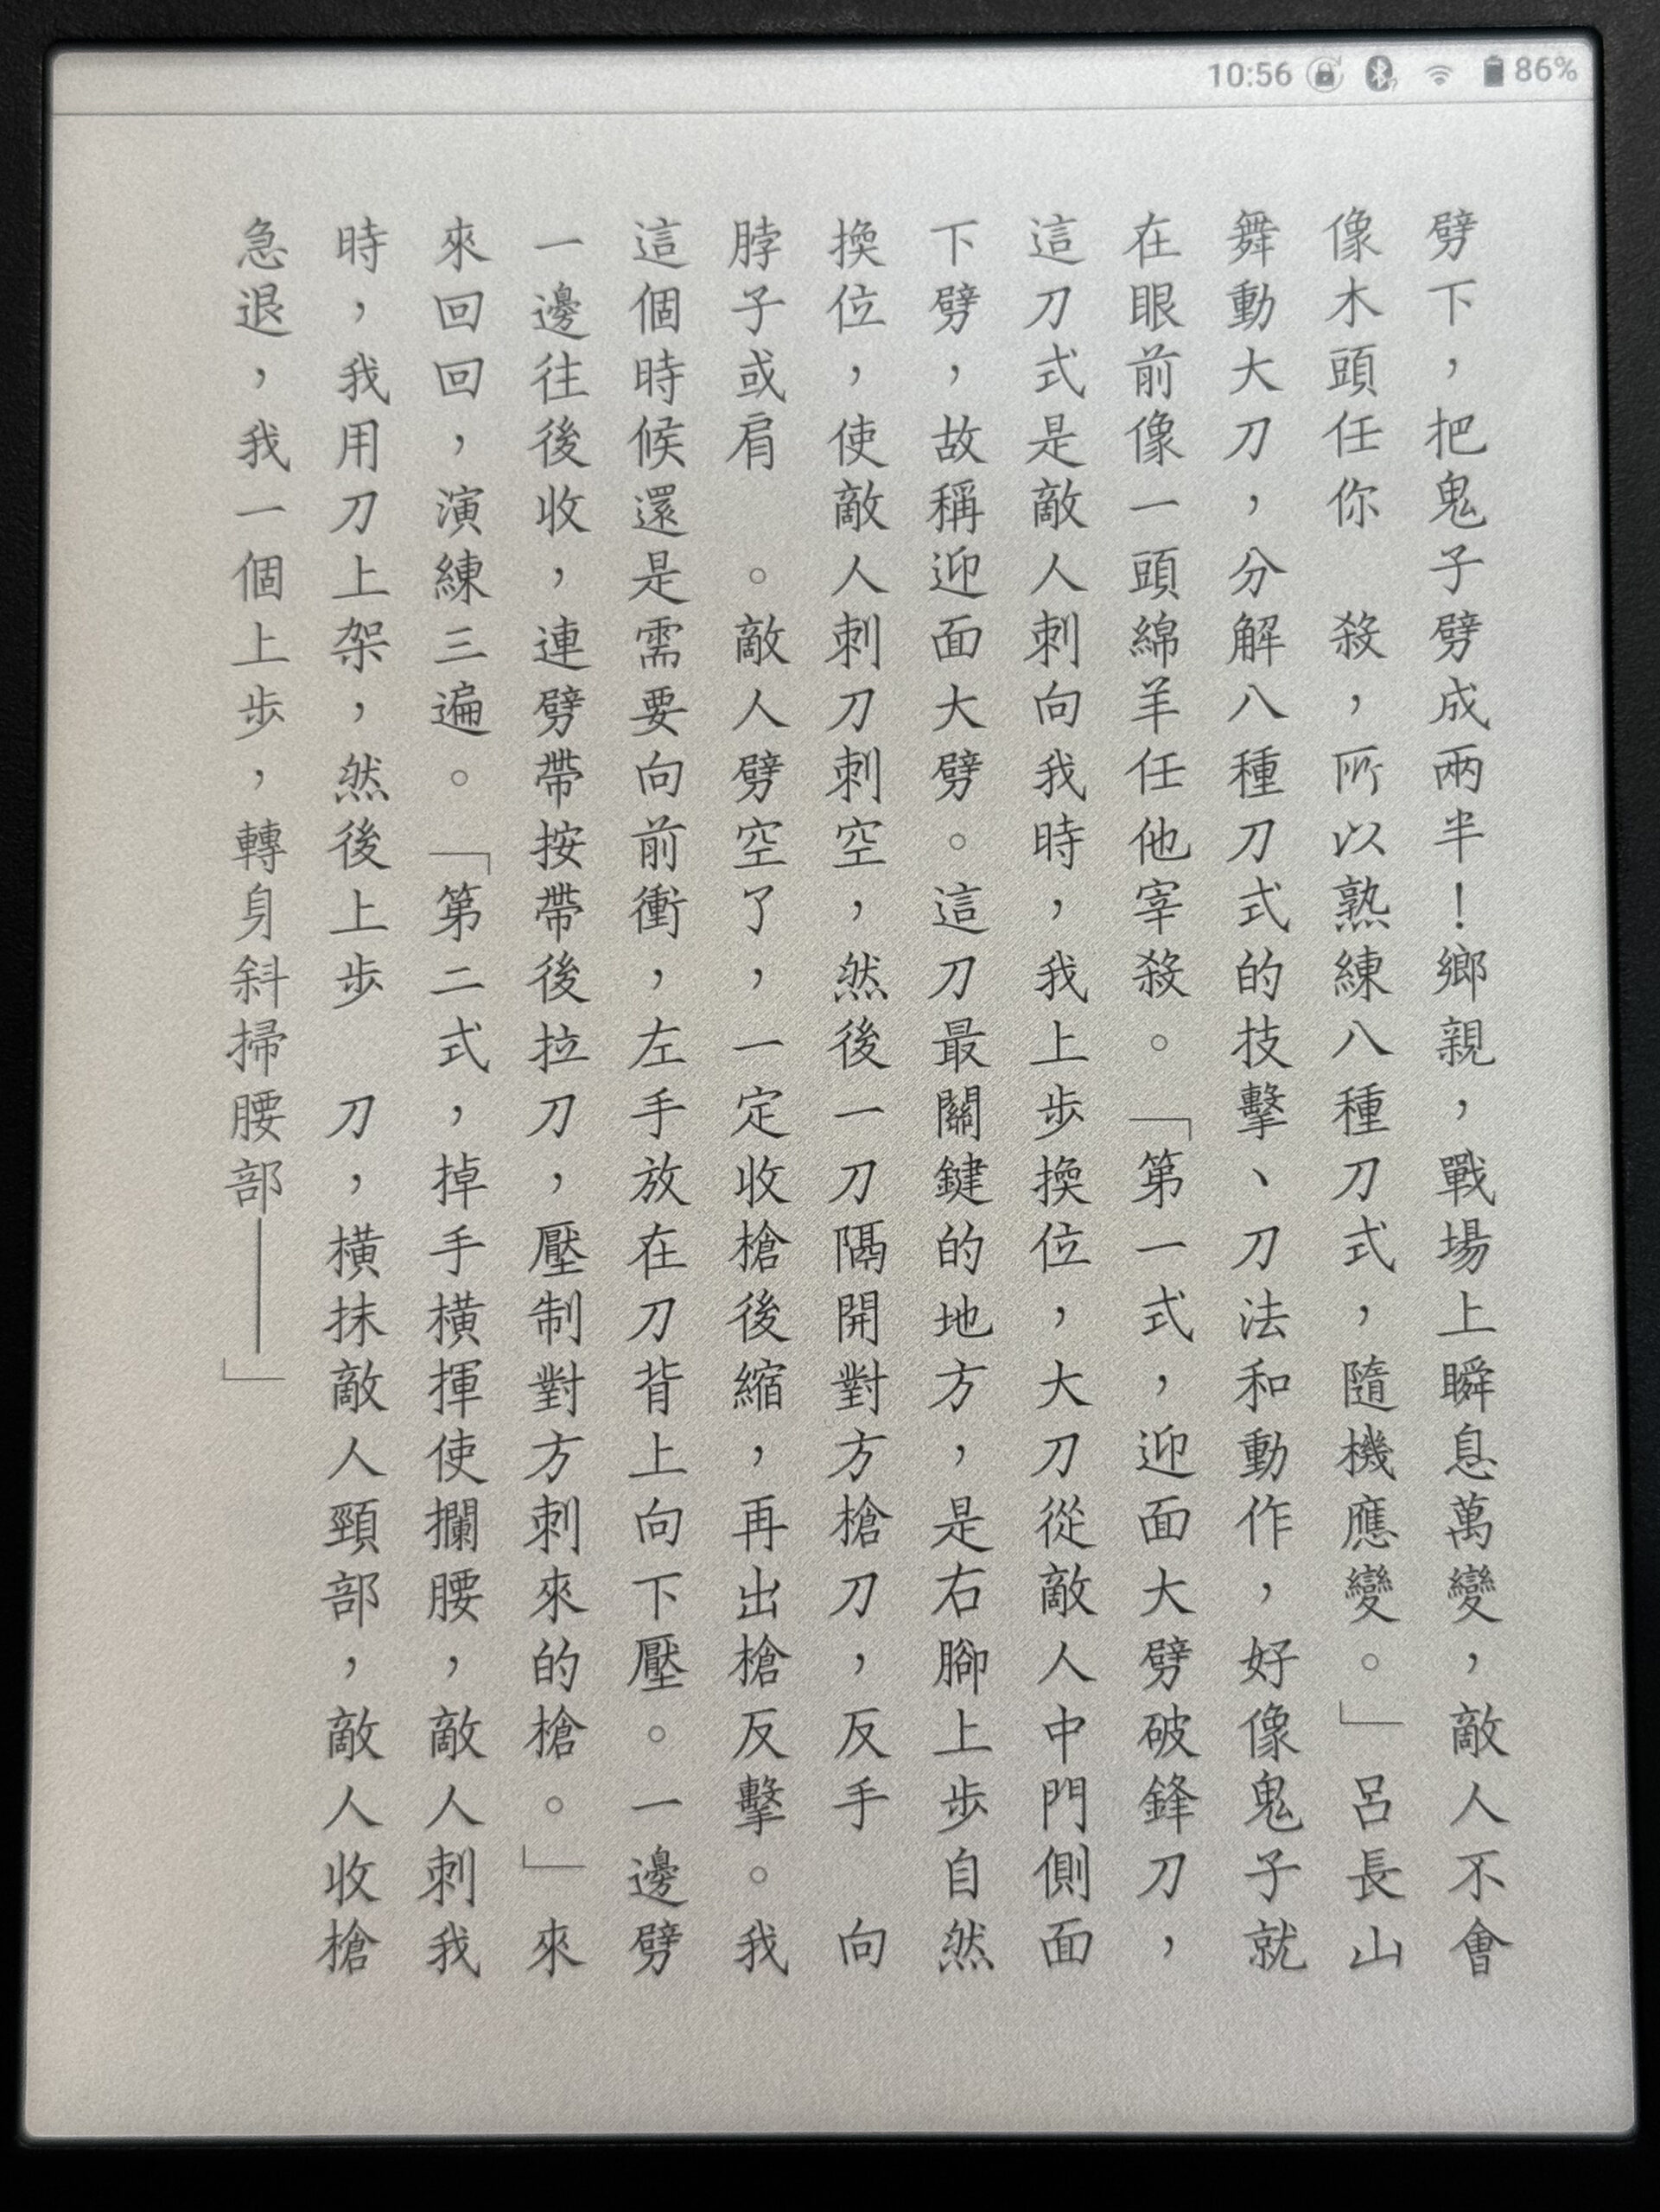 10:56 86%
劈下，把鬼子劈成兩半！鄉親，戰場上瞬息萬變，敵人不會
像木頭任你　殺，所以熟練八種刀式，隨機應變。」呂長山
舞動大刀，分解八種刀式的技擊、刀法和動作，好像鬼子就
在眼前像一頭綿羊任他宰殺。「第一式，迎面大劈破鋒刀，
這刀式是敵人刺向我時，我上步換位，大刀從敵人中門側面
下劈，故稱迎面大劈。這刀最關鍵的地方，是右腳上步自然
換位，使敵人刺刀刺空，然後一刀隔開對方槍刀，反手　向
脖子或肩　。敵人劈空了，一定收槍後縮，再出槍反擊。我
這個時候還是需要向前衝，左手放在刀背上向下壓。一邊劈
一邊往後收，連劈帶按帶後拉刀，壓制對方刺來的槍。」來
來回回，演練三遍。「第二式，掉手橫揮使攔腰，敵人刺我
時，我用刀上架，然後上步　刀，橫抹敵人頸部，敵人收槍
急退，我一個上步，轉身斜掃腰部——」